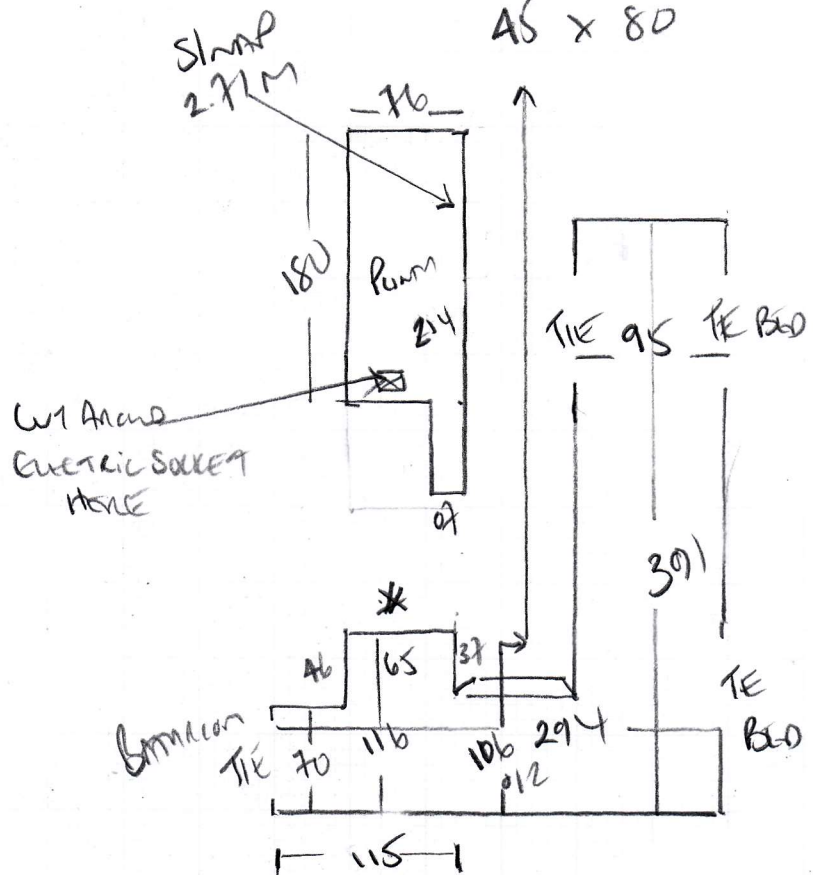 45 x 80
2.71M
76
180
214
TIE 95 TE BED
CUT AROUND
ELECTRIC SOCKET
HERE
07
391
46 65 37
TE
BED
BATHROOM
TIE 70 116 106 294
012
115